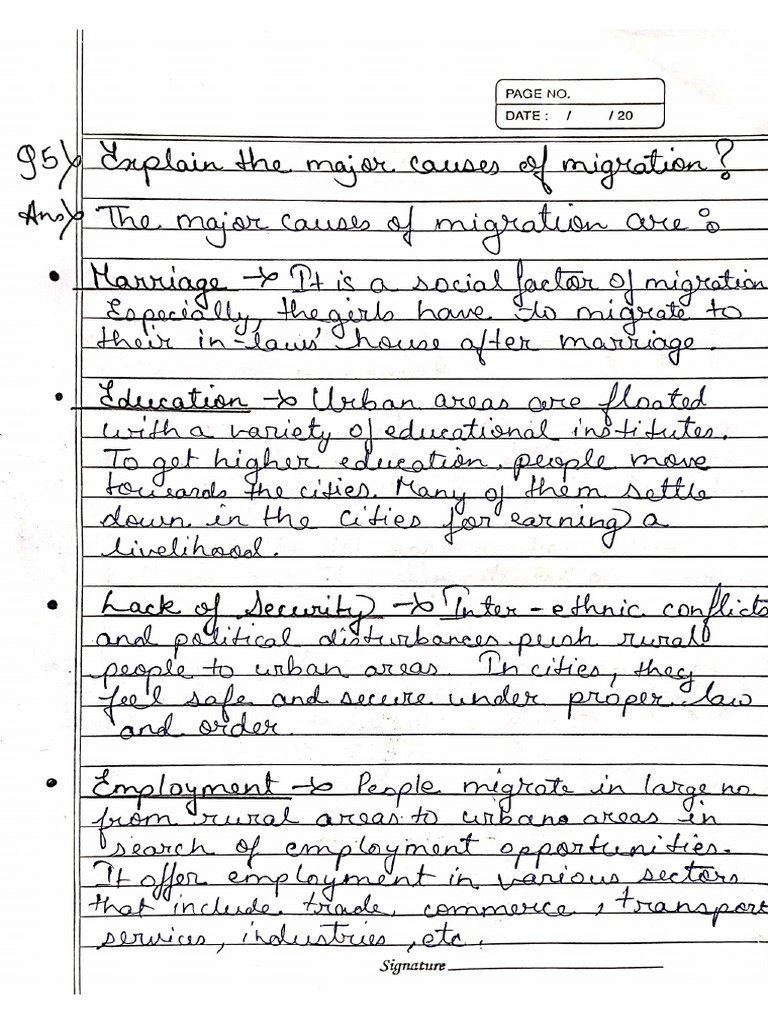 PAGE NO.
DATE : / / 20
Q5) Explain the major causes of migration?
Ans) The major causes of migration are :
• Marriage → It is a social factor of migration
Especially, the girls have to migrate to
their in-laws' house after marriage.
• Education → Urban areas are floated
with a variety of educational institutes.
To get higher education, people move
towards the cities. Many of them settle
down in the cities for earning a
livelihood.
• Lack of Security → Inter-ethnic conflicts
and political disturbances push rural
people to urban areas. In cities, they
feel safe and secure under proper law
and order.
• Employment → People migrate in large no
from rural areas to urban areas in
search of employment opportunities.
It offer employment in various sectors
that include trade, commerce, transport
services, industries, etc.
Signature